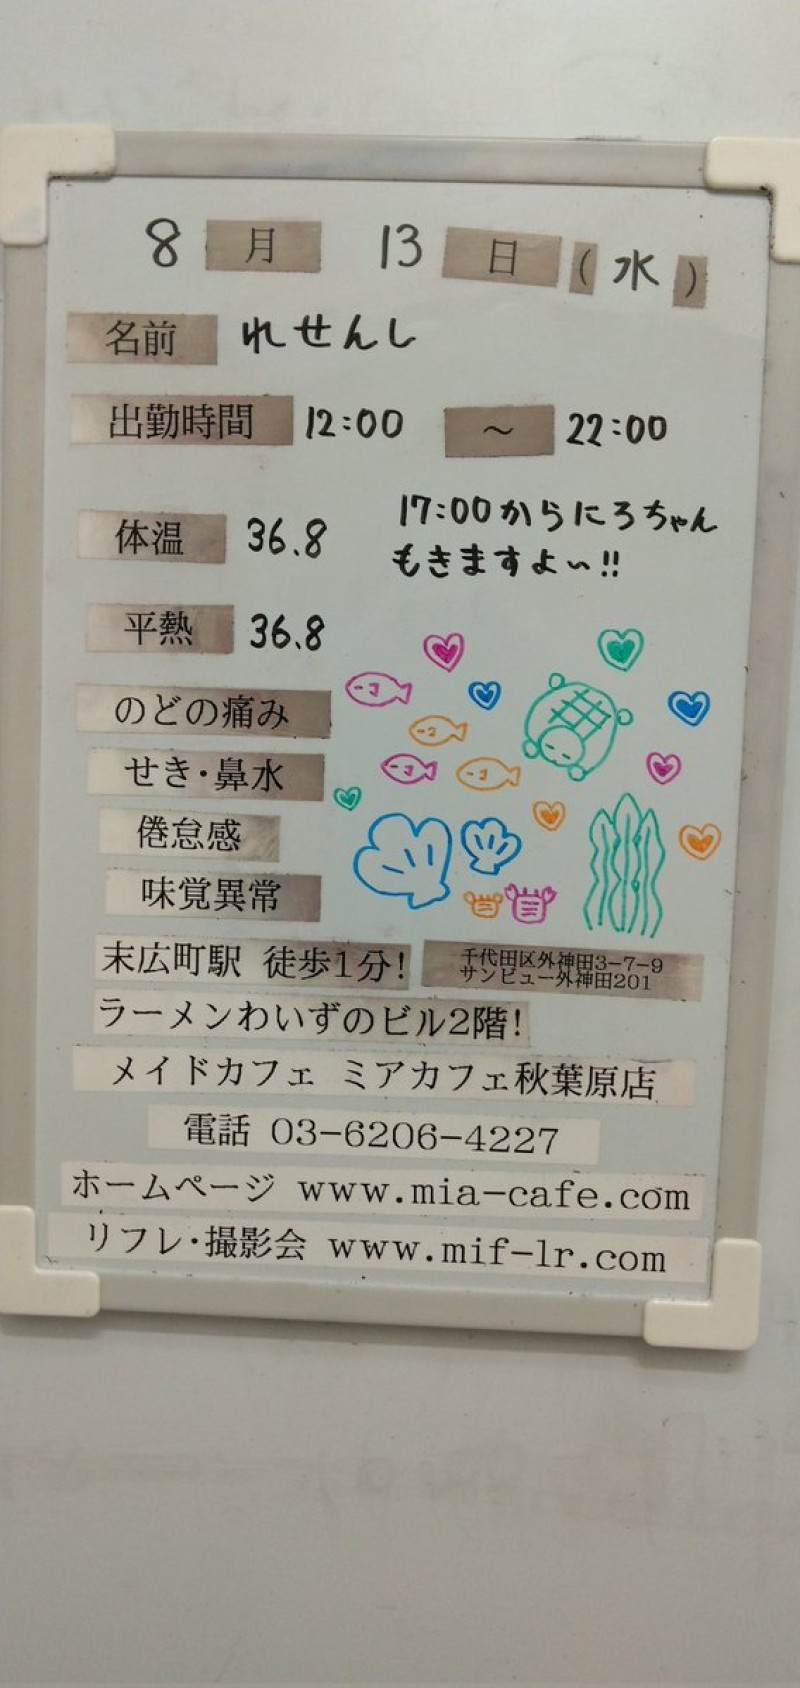 8月 13日(水)
名前 れせんし
出勤時間 12:00 ～ 22:00
体温 36.8
17:00からにろちゃん
もきますよ〜!!
平熱 36.8
のどの痛み
せき・鼻水
倦怠感
味覚異常
末広町駅 徒歩1分!
千代田区外神田3-7-9
サンビュー外神田201
ラーメンわいずのビル2階!
メイドカフェ ミアカフェ秋葉原店
電話 03-6206-4227
ホームページ www.mia-cafe.com
リフレ・撮影会 www.mif-lr.com